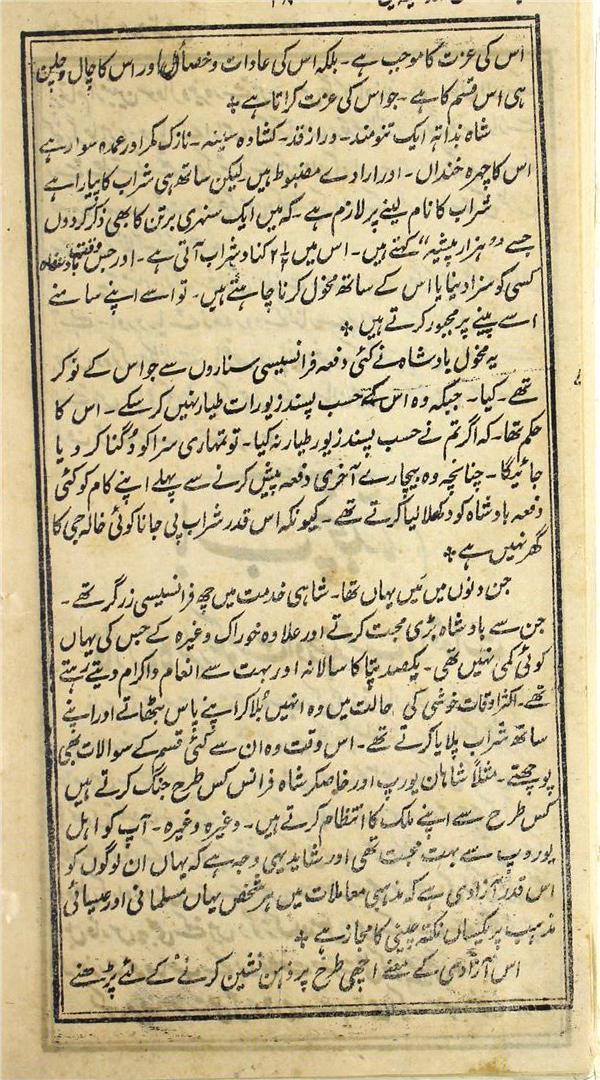 اس کی عزت کا موجب ہے۔ بلکہ اس کی عادات و خصائل اور اس کا چال و چلن
ہی اس قسم کا ہے۔ جو اس کی عزت کراتا ہے ٭
شاہ بذاتہٖ ایک تنومند۔ دراز قد۔ کشادہ سینہ۔ نازک کمر اور عمدہ سوار ہے
اس کا چہرہ خنداں۔ اور ارادے مضبوط ہیں۔ لیکن ساتھ ہی شراب کا پیارا ہے
شراب کا نام لینے پر لازم ہے۔ کہ میں ایک سنہری برتن کا بھی ذکر کر دوں
جسے "ہزار پیشہ" کہتے ہیں۔ اس میں ۲½ شراب آتی ہے۔ اور جس بادشاہ
کسی کو سزا دینا یا اس کے ساتھ مخول کرنا چاہتے ہیں۔ تو اسے اپنے سامنے
اسے پینے پر مجبور کرتے ہیں ٭
یہ مخول بادشاہ نے کئی دفعہ فرانسیسی سناروں سے جو اس کے نوکر
تھے۔ کیا۔ جبکہ وہ اس کے حسب پسند زیورات طیار نہیں کر سکے۔ اس کا
حکم تھا۔ کہ اگر تم نے حسب پسند زیور طیار نہ کیا۔ تو تمہاری سزا کو دُگنا کر دیا
جائیگا۔ چنانچہ وہ بیچارے آخری دفعہ پیش کرنے سے پہلے اپنے کام کو کئی
دفعہ بادشاہ کو دکھلا لیا کرتے تھے۔ کیونکہ اس قدر شراب پی جانا کوئی خالہ جی کا
گھر نہیں ہے ٭
جن دنوں میں مَیں یہاں تھا۔ شاہی خدمت میں چھ فرانسیسی زرگر تھے۔
جن سے بادشاہ بڑی محبت کرتے اور علاوہ خوراک وغیرہ کے جس کی یہاں
کوئی کمی نہیں تھی۔ یکصد سالانہ اور بہت سے انعام و اکرام دیتے رہتے
تھے۔ اکثر اوقات خوشی کی حالت میں وہ انہیں بُلا کر اپنے پاس بٹھاتے اور اپنے
ساتھ شراب پلایا کرتے تھے۔ اس وقت وہ ان سے کئی قسم کے سوالات بھی
پوچھتے۔ مثلاً شاہان یورپ اور خاصکر شاہ فرانس کس طرح جنگ کرتے ہیں
کس طرح سے اپنے ملک کا انتظام کرتے ہیں۔ وغیرہ وغیرہ۔ آپ کو اہل
یوروپ سے بہت محبت تھی اور شاید یہی وجہ ہے کہ یہاں ان لوگوں کو
اس قدر آزادی ہے کہ مذہبی معاملات میں ہر شخص یہاں مسلمانی اور عیسائی
مذہب پر یکساں نکتہ چینی کا مجاز ہے ٭
اس آزادی کے معنے اچھی طرح پر ذہن نشین کرنے کے لئے پڑھنے